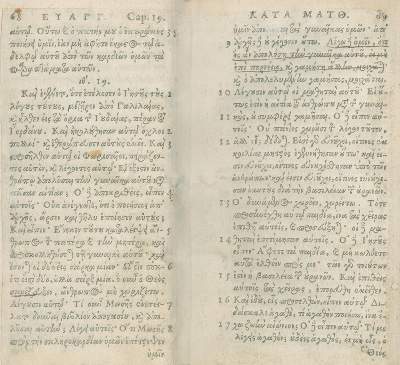 68 ΕΥΑΓΓ. Cap. 19.
αὐτῷ. Οὕτω καὶ ὁ πατήρ μου ὁ ἐπουράνιος
ποιήσει ὑμῖν, ἐὰν μὴ ἀφῆτε ἕκαστος τῷ ἀ-
δελφῷ αὐτοῦ ἀπὸ τῶν καρδιῶν ὑμῶν τὰ
παραπτώματα αὐτῶν.
19.
Καὶ ἐγένετο, ὅτε ἐτέλεσεν ὁ Ἰησοῦς τοὺς
λόγους τούτους, μετῆρεν ἀπὸ τῆς Γαλιλαίας,
καὶ ἦλθεν εἰς τὰ ὅρια τῆς Ἰουδαίας, πέραν τοῦ
Ἰορδάνου. Καὶ ἠκολούθησαν αὐτῷ ὄχλοι 2
πολλοί· καὶ ἐθεράπευσεν αὐτοὺς ἐκεῖ. Καὶ 3
προσῆλθον αὐτῷ οἱ Φαρισαῖοι, πειράζον-
τες αὐτὸν, καὶ λέγοντες αὐτῷ· Εἰ ἔξεστιν ἀν-
θρώπῳ ἀπολῦσαι τὴν γυναῖκα αὐτοῦ κατὰ
πᾶσαν αἰτίαν; Ὁ δὲ ἀποκριθεὶς, εἶπεν 4
αὐτοῖς· Οὐκ ἀνέγνωτε, ὅτι ὁ ποιήσας ἀπ'
ἀρχῆς, ἄρσεν καὶ θῆλυ ἐποίησεν αὐτούς;
Καὶ εἶπεν· Ἕνεκεν τούτου καταλείψει ἄν- 5
θρωπος τὸν πατέρα καὶ τὴν μητέρα, καὶ
προσκολληθήσεται τῇ γυναικὶ αὐτοῦ· καὶ
ἔσονται οἱ δύο εἰς σάρκα μίαν. Ὥστε οὐκέ- 6
τι εἰσὶ δύο, ἀλλὰ σὰρξ μία. ὃ οὖν ὁ Θεὸς
συνέζευξεν, ἄνθρωπος μὴ χωριζέτω.
Λέγουσιν αὐτῷ· Τί οὖν Μωσῆς ἐνετεί- 7
λατο δοῦναι βιβλίον ἀποστασίου, καὶ ἀπο-
λῦσαι αὐτήν; Λέγει αὐτοῖς· Ὅτι Μωσῆς 8
πρὸς τὴν σκληροκαρδίαν ὑμῶν ἐπέτρεψεν
ὑμῖν
ΚΑΤΑ ΜΑΤΘ. 69
ὑμῖν ἀπολῦσαι τὰς γυναῖκας ὑμῶν· ἀπ'
9 ἀρχῆς δὲ οὐ γέγονεν οὕτω. Λέγω δὲ ὑμῖν, ὅτι
ὃς ἂν ἀπολύσῃ τὴν γυναῖκα αὐτοῦ, εἰ μὴ
ἐπὶ πορνείᾳ, καὶ γαμήσῃ ἄλλην, μοιχᾶται·
καὶ ὁ ἀπολελυμένην γαμήσας, μοιχᾶται.
10 Λέγουσιν αὐτῷ οἱ μαθηταὶ αὐτοῦ· Εἰ οὕ-
τως ἐστὶν ἡ αἰτία τοῦ ἀνθρώπου μετὰ τῆς γυναι-
11 κὸς, οὐ συμφέρει γαμῆσαι. Ὁ δὲ εἶπεν αὐ-
τοῖς· Οὐ πάντες χωροῦσι τὸν λόγον τοῦτον,
12 ἀλλ' οἷς δέδοται. Εἰσὶ γὰρ εὐνοῦχοι, οἵτινες ἐκ
κοιλίας μητρὸς ἐγεννήθησαν οὕτω· καὶ εἰσιν
εὐνοῦχοι, οἵτινες εὐνουχίσθησαν ὑπὸ τῶν
ἀνθρώπων· καὶ εἰσιν εὐνοῦχοι, οἵτινες εὐνούχι-
σαν ἑαυτοὺς διὰ τὴν βασιλείαν τῶν οὐρανῶν.
13 Ὁ δυνάμενος χωρεῖν, χωρείτω. Τότε
προσηνέχθη αὐτῷ παιδία, ἵνα τὰς χεῖρας
ἐπιθῇ αὐτοῖς, καὶ προσεύξηται· οἱ δὲ μα-
14 θηταὶ ἐπετίμησαν αὐτοῖς. Ὁ δὲ Ἰησοῦς
εἶπεν· Ἄφετε τὰ παιδία, καὶ μὴ κωλύετε
αὐτὰ ἐλθεῖν πρός με· τῶν γὰρ τοιούτων
15 ἐστὶν ἡ βασιλεία τῶν οὐρανῶν. Καὶ ἐπιθεὶς
αὐτοῖς τὰς χεῖρας, ἐπορεύθη ἐκεῖθεν.
16 Καὶ ἰδοὺ, εἷς προσελθὼν, εἶπεν αὐτῷ· Δι-
δάσκαλε ἀγαθὲ, τί ἀγαθὸν ποιήσω, ἵνα ἔ-
17 χω ζωὴν αἰώνιον; Ὁ δὲ εἶπεν αὐτῷ· Τί με
λέγεις ἀγαθόν; οὐδεὶς ἀγαθὸς, εἰ μὴ εἷς, ὁ
Θεός